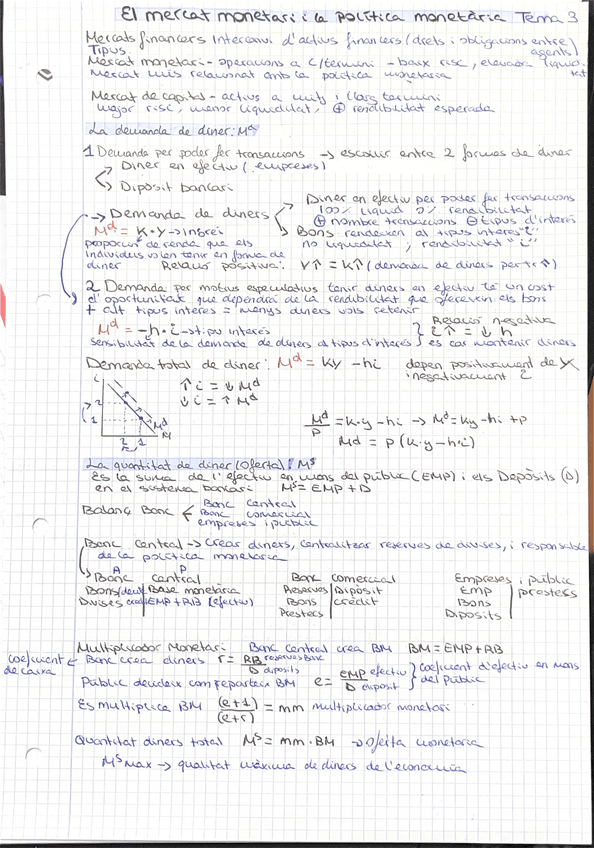 El mercat monetari i la política monetària Tema 3
Mercats financers Intercanvi d'actius financers (drets i obligacions entre agents)
Tipus.
Mercat monetari - operacions a c/termini - baix risc, elevada liquiditat
Mercat més relacionat amb la política monetària
Mercat de capital - actius a mitj i llarg termini
major risc, menor liquiditat, ⊕ rendibilitat esperada
La demanda de diner: Md
1 Demanda per poder fer transaccions → escollir entre 2 formes de diner
Diner en efectiu (empreses)
Dipòsit bancari
→ Demanda de diners
Diner en efectiu per poder fer transaccions
100% liquid 0% rendibilitat
⊕ nombre transaccions ⊖ tipus d'interès
Bons rendeixen al tipus interès "i"
no liquiditat, rendibilitat "i"
Md = K·Y → ingrés
proporció de renda que els
individus volen tenir en forma de
diner Relació positiva: Y↑ = K↑ (demanda de diners per tr ↑)
2 Demanda per motius especulatius tenir diners en efectiu té un cost
d'oportunitat que dependrà de la rendibilitat que ofereixen els bons
+ alt tipus interes = menys diners vols retenir
Md = -h·i → tipu interés
Sensibilitat de la demanda de diners al tipus d'interès
Relació negativa
i↑ = ↓h
es car mantenir diners
Demanda total de diner: Md = Ky - hi depen positivament de Y
i negativament i
i
2
1
2 1
Md
M
↑i = ↓Md
↓i = ↑Md
Md/P = K·y - hi → Md = Ky - hi + P
Md = P (K·y - h·i)
La quantitat de diner (oferta): Ms
Es la suma de l'efectiu en mans del públic (EMP) i els Depòsits (D)
en el sistema bancari Ms = EMP + D
Balanç Banc
Banc central
Banc comercial
empreses i públic
Banc central → Crear diners, centralitzar reserves de divises, i responsable
de la política monetària
A P
Banc central
Bons/deute Base monetària
Divises EMP + RB (efectiu)
Banc comercial
Reserves Dipòsit
Bons crèdit
Prestecs
Empreses i públic
EMP prestecs
Bons
Dipòsits
Multiplicador Monetari: Banc central crea BM BM = EMP + RB
coeficient de caixa ← Banc crea diners r = RB reserves Banc / D diposits
Públic decideix com reparteix BM e = EMP efectiu / D diposit
coeficient d'efectiu en mans
del públic
Es multiplica BM (e+1)/(e+r) = mm multiplicador monetari
Quantitat diners total Ms = mm·BM → Oferta monetaria
Ms max → quantitat màxima de diners de l'economia